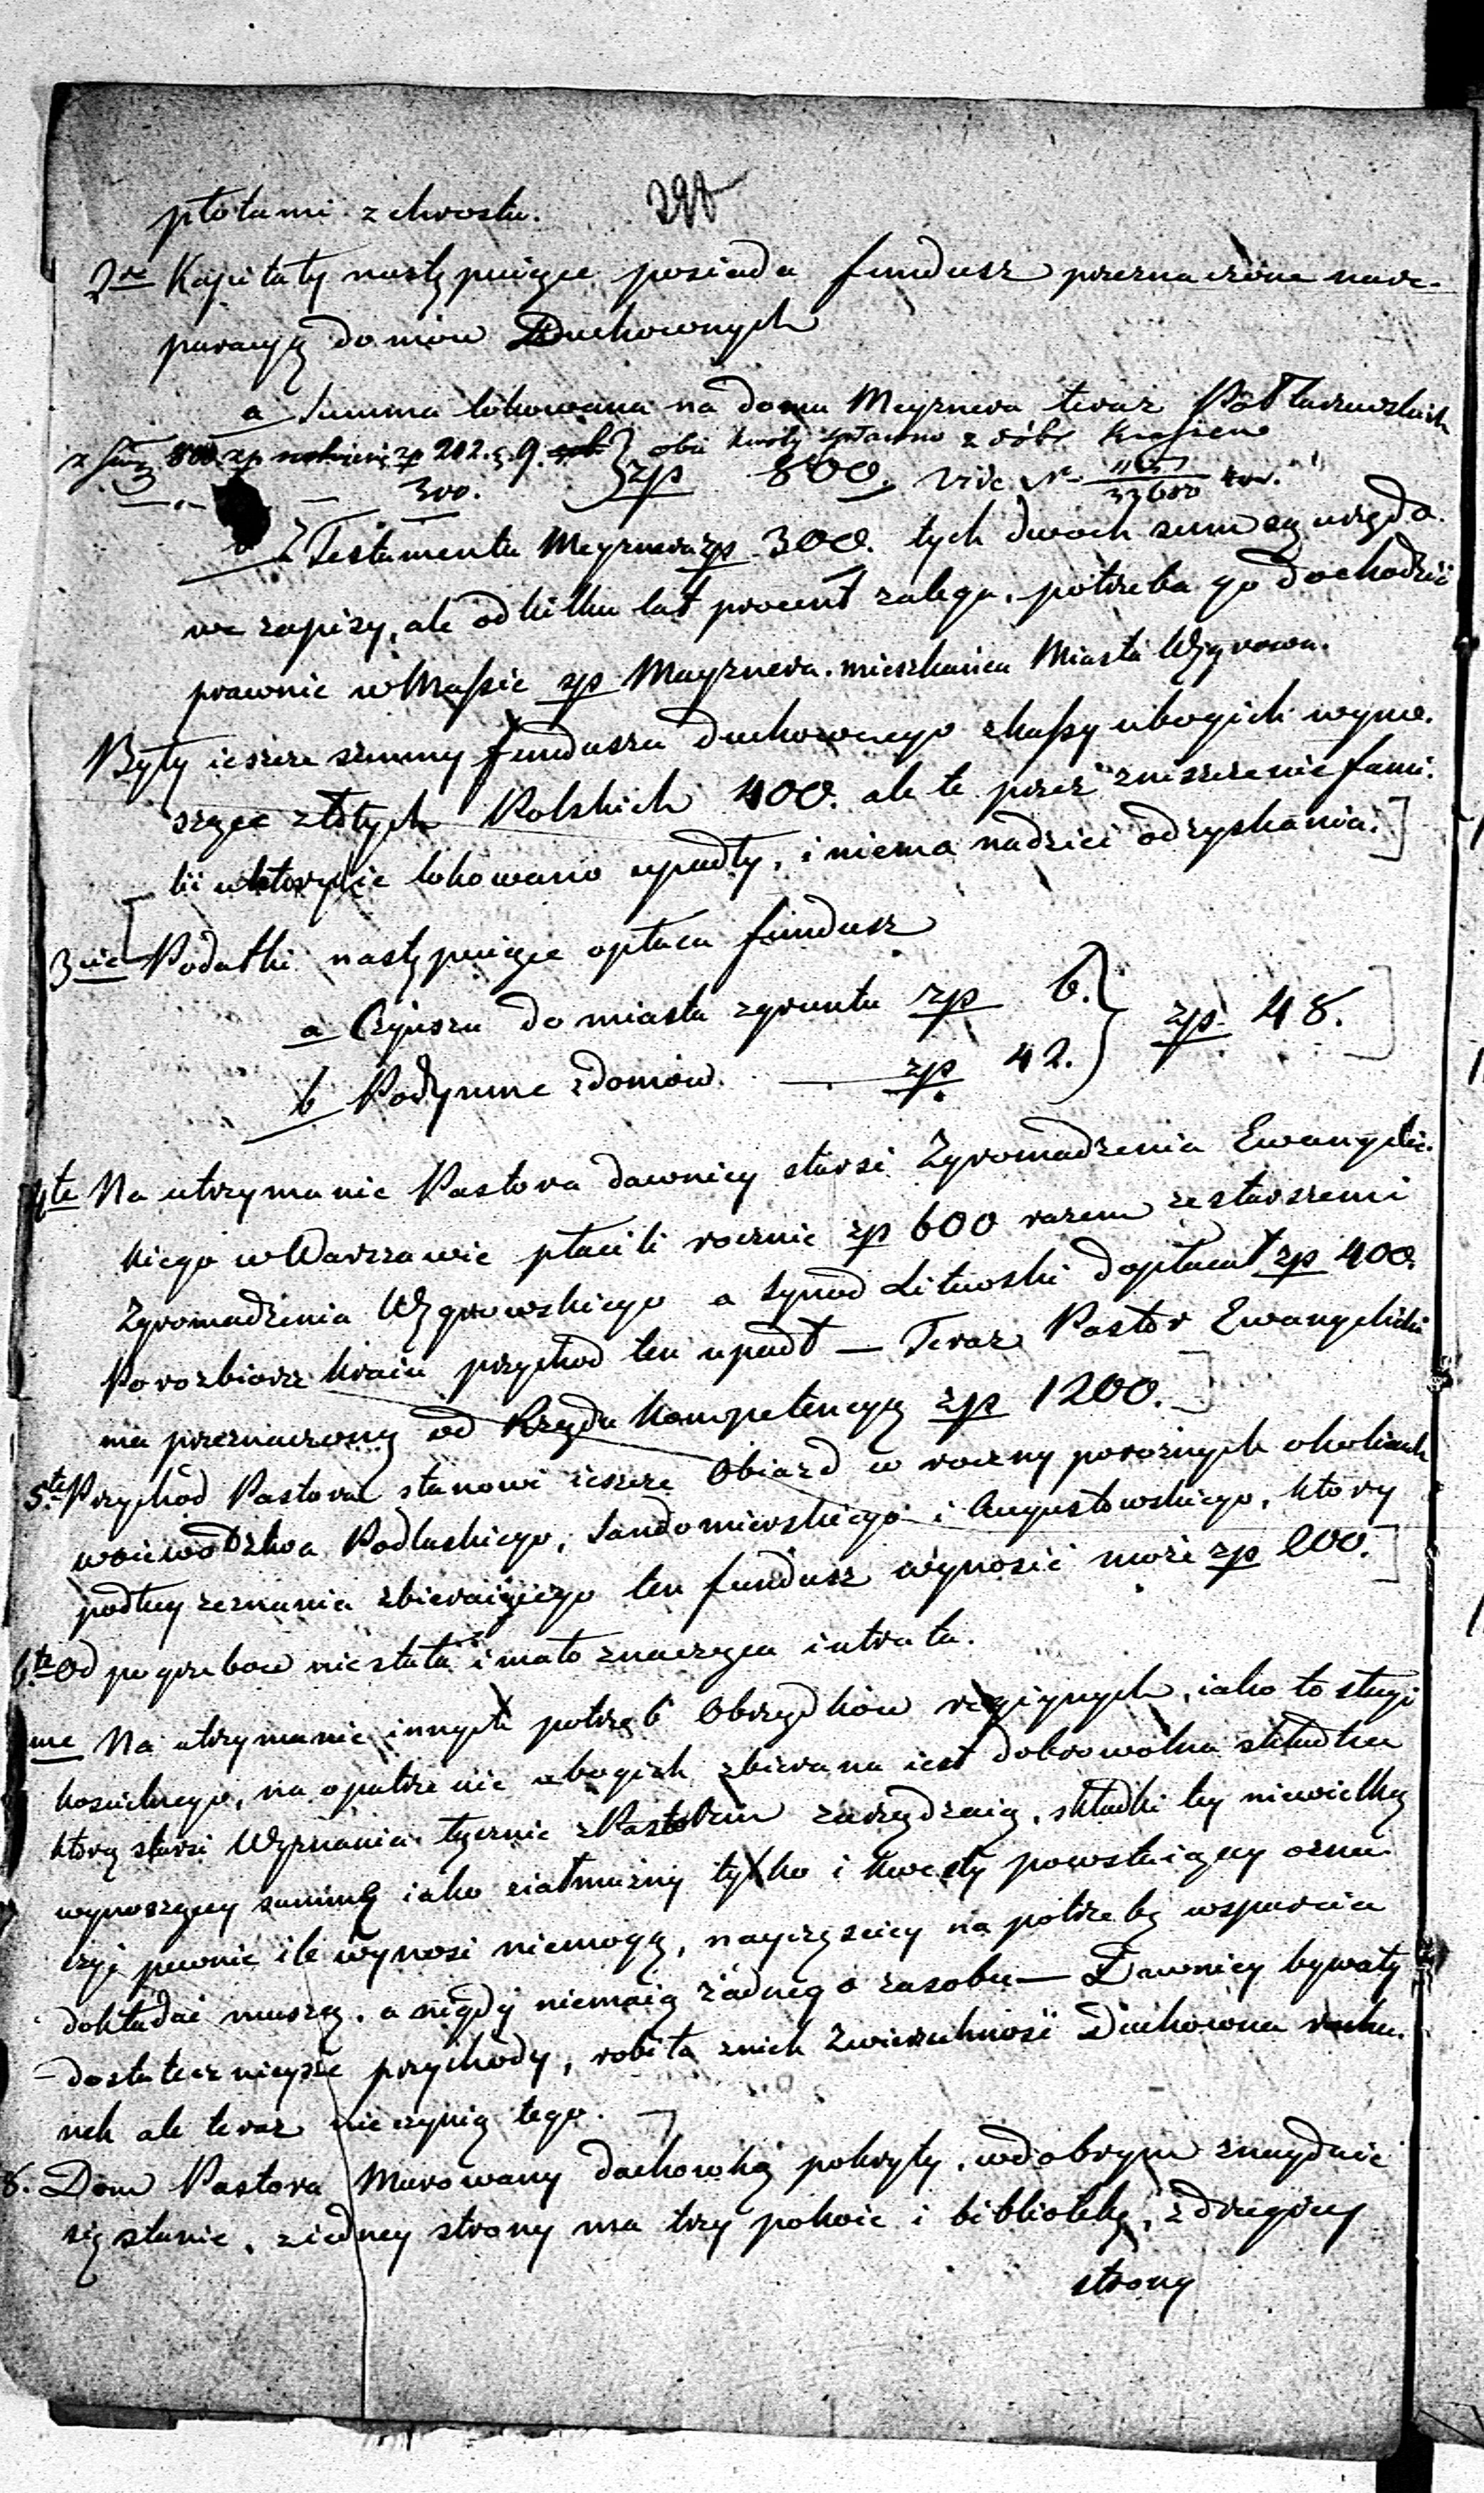 płotami z chrostu.
2re Kapitały następuiące posiada fundusz przeznaczone na re-
paracyą domów Duchownych
a Summa lokowana na domu Meyznera teraz
z sumy 800. zp 202. g. 9. obie kwoty spłacono z dóbr
300. zp 800. vide N.
b z Testamentu Meyznera zp 300. tych dwoch sum są urzędo-
we zapisy, ale od kilku lat procent zalega, potrzeba go dochodzić
prawnie w Massie zp Mayznera. mieszkańca Miasta Węgrowa.
Były ieszcze summy funduszu duchownego z kassy ubogich wyno-
szące złotych Polskich 400. ale te przez zniszczenie fami-
lii u ktorych ie lokowano upadły, i niema nadziei odzyskania.
3cie Podatki następuiące opłaca fundusz
a Czynszu do miasta z gruntu zp 6. } zp 48.
b Podymne z domów. — zp 42.
4te Na utrzymanie Pastora dawniey starsi Zgromadzenia Ewangelic-
kiego w Warszawie płacili rocznie zp 600 razem ze starszemi
Zgromadzenia Węgrowskiego a Synod Litewski dopłacał zp 400.
Po rozbiorze kraiu przychod ten upadł — Teraz Pastor Ewangelicki
ma przeznaczoną od Rządu kompetencyą zp 1200.
5te Przychód Pastora stanowi ieszcze Obiazd w roczny po rożnych okolicach
woiewodztwa Podlaskiego, Sandomirskiego i Augustowskiego, ktory
podług zeznania zbieraiącego ten fundusz wynosić może zp 200.
6te Od pogrzebow niestała i mało znacząca intrata.
me Na utrzymanie innych potrzeb Obrządków religiynych, iako to sługi
koscielnego, na opatrzenie ubogich zbierana iest dobrowolna składka
ktorą starsi Wyznania łącznie z Pastorem zarządzaią, składki tey niewielką
wynoszącey summę iako z iałmużny tylko i kwesty powstaiącey ozna-
czyć pewnie ile wynosi niemogą, nayczęsciey na potrzebę wsparcia
dokładać muszą, a nigdy niemaią żadnego zasobu — Dawniey bywały
dostatecznieysze przychody, robiła z nich Zwierzchność Duchowna rachu-
nek ale teraz nie czynią tego.
8. Dom Pastora Murowany dachowką pokryty, w dobrym znayduie
się stanie, z iedney strony ma trzy pokoie i bibliotekę, z drugiey
strony